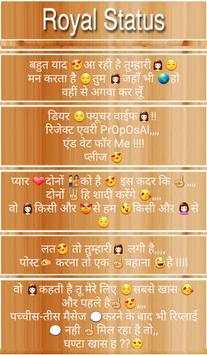 Royal Status
बहुत याद 😍 आ रही है तुम्हारी👩😏
मन करता है 😏तुम 👩जहाँ भी 🌏हो
वहीं से अगवा कर लूँ
डियर 😍 फ्यूचर वाईफ👩!!
रिजेक्ट एवरी PrOpOsAl,,,,
एंड वेट फॉर Me !!!!
प्लीज 😍
प्यार ❤️दोनों 👫को है 😍 इस कदर कि ☝️,,,,
दोनों ✌️ हि शादी करेंगे 👌,,,,
वो 👩किसी और 😏 से हम 😘 किसी और 👩 से
लत😍 तो तुम्हारी👩 लगी है,,,,
पोस्ट ✍️ करना तो एक ☝️ बहाना 😜 है !!!!
वो 👩कहती है तु मेरे लिए 😏सबसे खास👌
और पहले है☝️,,,,
पच्चीस-तीस मैसेज 💬करने के बाद भी रिप्लाई
💬 नही ☝️मिल रहा है तो,,
घण्टा खास हु ??😏